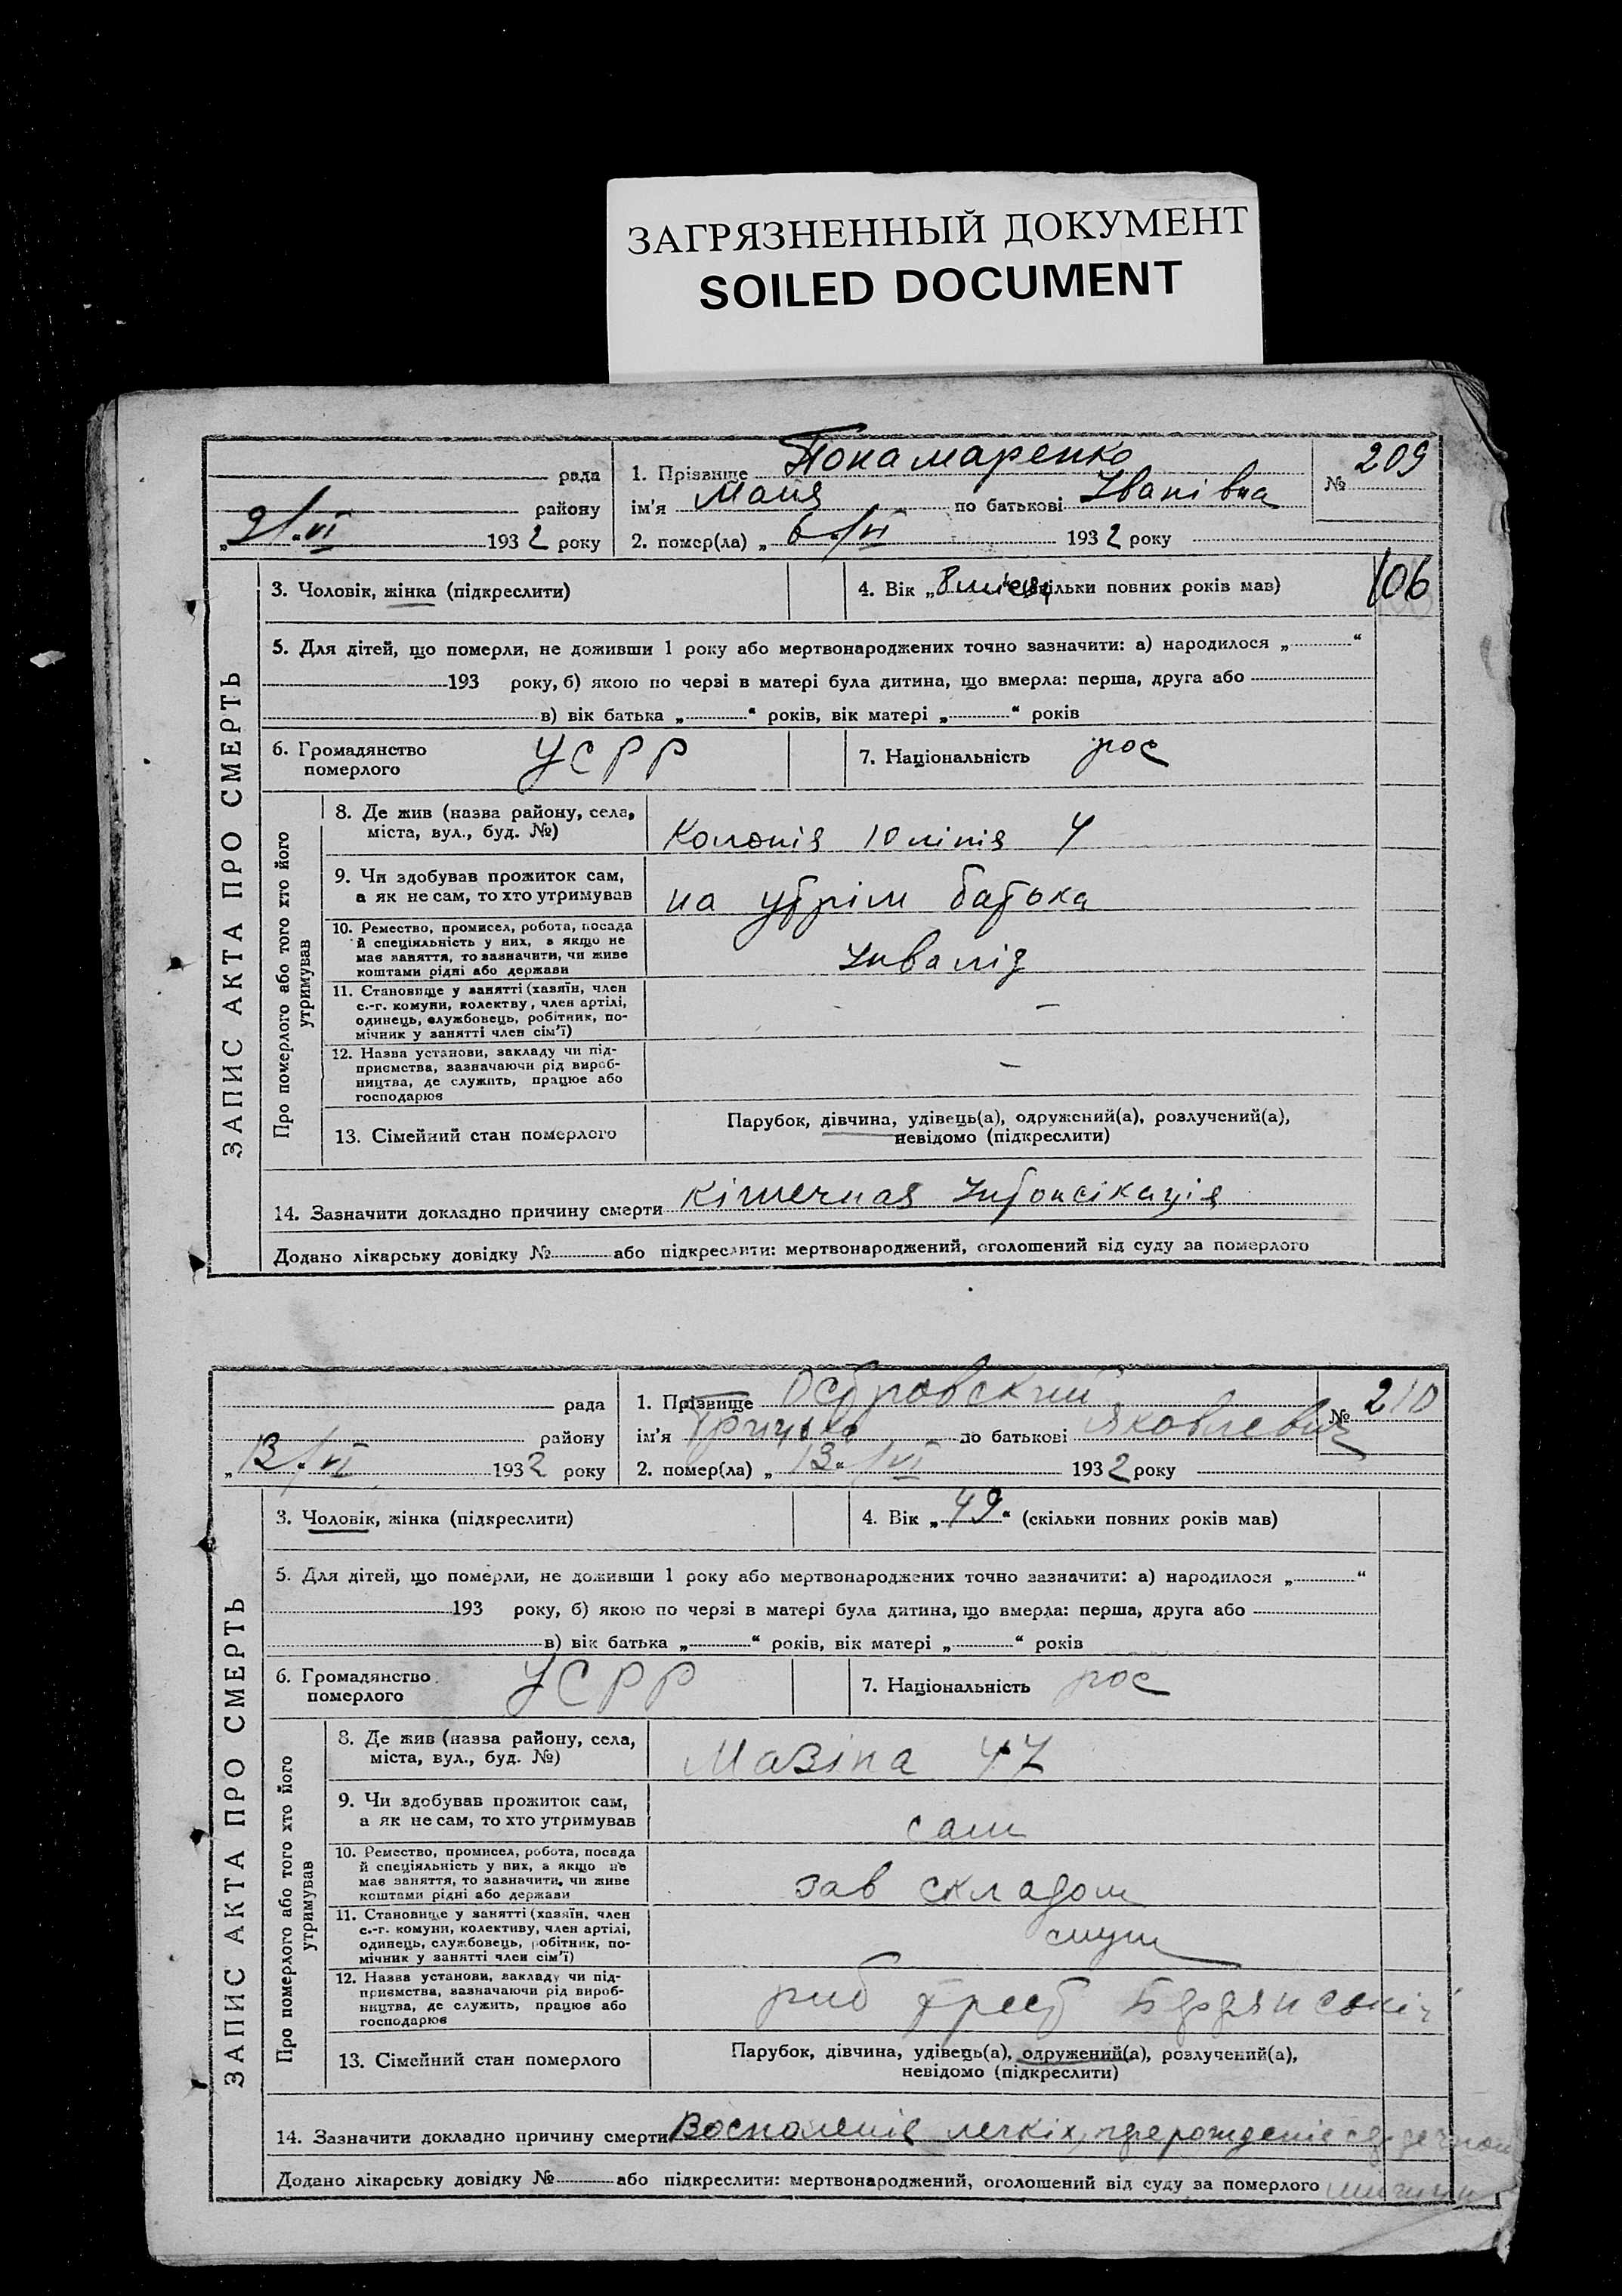 ЗАГРЯЗНЕННЫЙ ДОКУМЕНТ
SOILED DOCUMENT
рада
1. Прізвище Понамаренко
№ 209
району
ім'я Маня по батькові Іванівна
„9“/VI 1932 року
2. помер(ла) „6“/VI 1932 року
ЗАПИС АКТА ПРО СМЕРТЬ
3. Чоловік, жінка (підкреслити)
4. Вік „8 місяц“ (скільки повних років мав)
106
5. Для дітей, що померли, не доживши 1 року або мертвонароджених точно зазначити: а) народилося „ “
193 року, б) якою по черзі в матері була дитина, що вмерла: перша, друга або
в) вік батька „ “ років, вік матері „ “ років
6. Громадянство
померлого
УСРР
7. Національність рос
Про померлого або того хто його
утримував
8. Де жив (назва району, села,
міста, вул., буд. №)
Колонія 10 лінія 4
9. Чи здобував прожиток сам,
а як не сам, то хто утримував
на утрім батька
10. Ремество, промисел, робота, посада
й спеціяльність у них, а якщо не
має заняття, то зазначити, чи живе
коштами рідні або держави
Інвалід
11. Становище у занятті (хазяїн, член
с.-г. комуни, колективу, член артілі,
одинець, службовець, робітник, по-
мічник у занятті член сім'ї)
- –
12. Назва установи, закладу чи під-
приємства, зазначаючи рід вироб-
ництва, де служить, працює або
господарює
–
13. Сімейний стан померлого
Парубок, дівчина, удівець(а), одружений(а), розлучений(а),
невідомо (підкреслити)
14. Зазначити докладно причину смерти кішечная Інтоксікація
Додано лікарську довідку № або підкреслити: мертвонароджений, оголошений від суду за померлого
рада
1. Прізвище Островский
№ 210
району
ім'я по батькові Яковлевич
„13“/VI 1932 року
2. помер(ла) „13“/VI 1932 року
ЗАПИС АКТА ПРО СМЕРТЬ
3. Чоловік, жінка (підкреслити)
4. Вік „49“ (скільки повних років мав)
5. Для дітей, що померли, не доживши 1 року або мертвонароджених точно зазначити: а) народилося „ “
193 року, б) якою по черзі в матері була дитина, що вмерла: перша, друга або
в) вік батька „ “ років, вік матері „ “ років
6. Громадянство
померлого
УСРР
7. Національність рос
Про померлого або того хто його
утримував
8. Де жив (назва району, села,
міста, вул., буд. №)
Мазіна 47
9. Чи здобував прожиток сам,
а як не сам, то хто утримував
сам
10. Ремество, промисел, робота, посада
й спеціяльність у них, а якщо не
має заняття, то зазначити, чи живе
коштами рідні або держави
зав складом
11. Становище у занятті (хазяїн, член
с.-г. комуни, колективу, член артілі,
одинець, службовець, робітник, по-
мічник у занятті член сім'ї)
служ
12. Назва установи, закладу чи під-
приємства, зазначаючи рід вироб-
ництва, де служить, працює або
господарює
риб трест Бердянській
13. Сімейний стан померлого
Парубок, дівчина, удівець(а), одружений(а), розлучений(а),
невідомо (підкреслити)
14. Зазначити докладно причину смерти Воспаленіе легкіх, перерожденіе сердечной
Додано лікарську довідку № або підкреслити: мертвонароджений, оголошений від суду за померлого